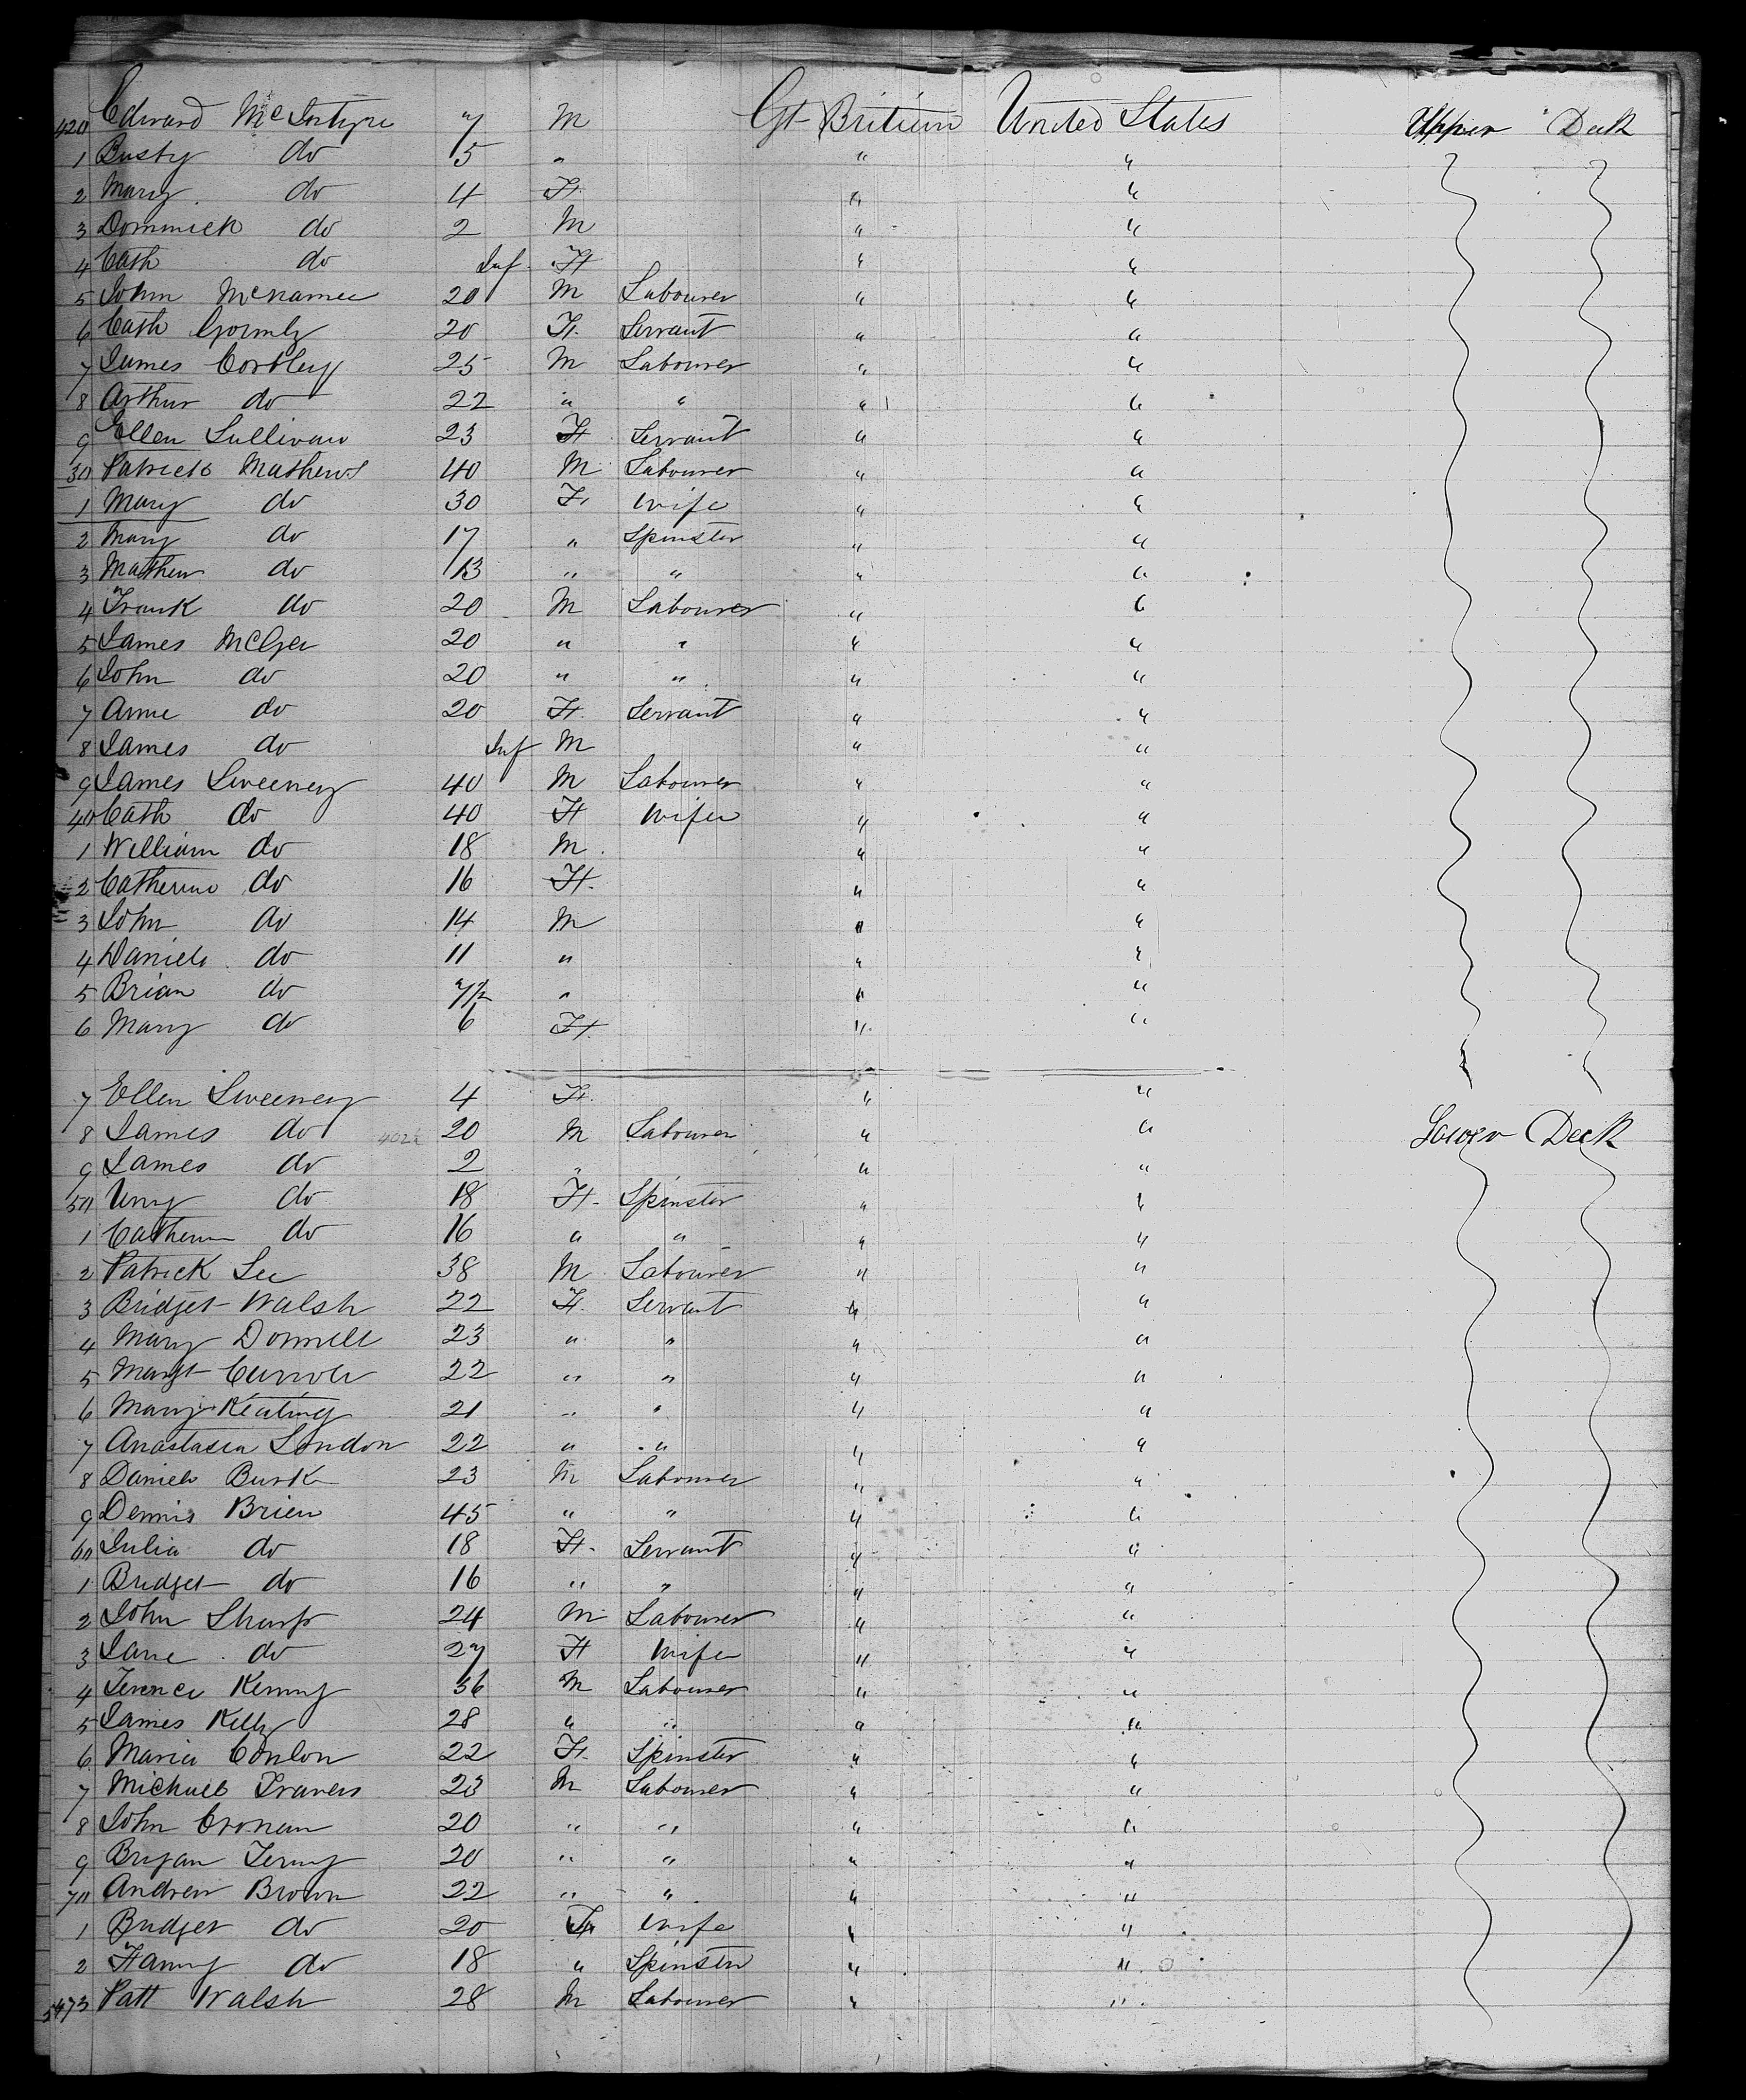 420 Edward McIntyre 7 M Gt Britian United States Upper Deck
1 Busty do 5 " " "
2 Mary do 4 F " "
3 Dominick do 2 M " "
4 Cath do Inf F " "
5 John McNamee 20 M Labourer " "
6 Cath Gormly 20 F Servant " "
7 James Corkley 25 M Labourer " "
8 Arthur do 22 " " " "
9 Ellen Sullivan 23 F Servant " "
30 Patrick Mathews 40 M Labourer " "
1 Mary do 30 F Wife " "
2 Mary do 17 " Spinster " "
3 Mathew do 13 " " " "
4 Frank do 20 M Labourer " "
5 James McGee 20 " " " "
6 John do 20 " " " "
7 Anne do 20 F Servant " "
8 James do Inf M " "
9 James Sweeney 40 M Labourer " "
40 Cath do 40 F Wife " "
1 William do 18 M " "
2 Catherine do 16 F " "
3 John do 14 M " "
4 Daniel do 11 " " "
5 Brian do 7½ " " "
6 Mary do 6 F " "
7 Ellen Sweeney 4 F " "
8 James do 20 M Labourer " " Lower Deck
9 James do 2 " " "
50 Uny do 18 F Spinster " "
1 Cathern do 16 " " " "
2 Patrick Lee 38 M Labourer " "
3 Bridget Walsh 22 F Servant " "
4 Mary Donnell 23 " " " "
5 Margt Carroll 22 " " " "
6 Mary Keating 21 " " " "
7 Anastasia London 22 " " " "
8 Daniel Burk 23 M Labourer " "
9 Dennis Brien 45 " " " "
60 Julia do 18 F Servant " "
1 Bridget do 16 " " " "
2 John Sharp 24 M Labourer " "
3 Jane do 27 F Wife " "
4 Terence Kenny 36 M Labourer " "
5 James Kelly 28 " " " "
6 Maria Conlon 22 F Spinster " "
7 Michael Travers 23 M Labourer " "
8 John Cronan 20 " " " "
9 Bryan Fenny 20 " " " "
70 Andrew Brown 22 " " " "
1 Bridget do 20 F Wife " "
2 Fanny do 18 " Spinster " "
473 Patt Walsh 28 M Labourer " "